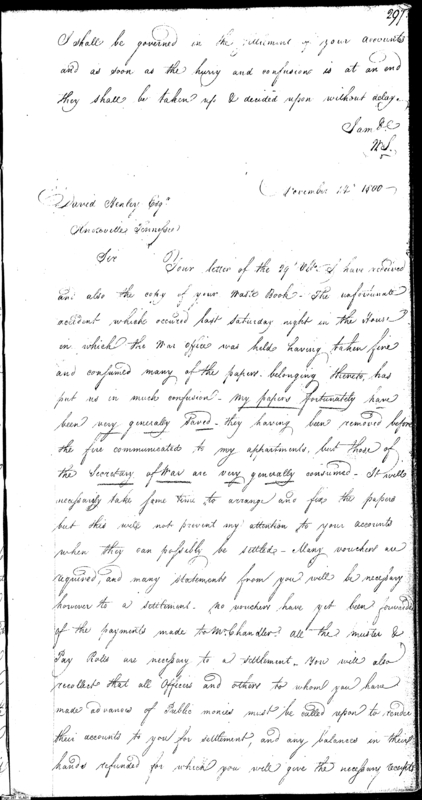 297
I shall be governed in the settlement of your accounts
and as soon as the hurry and confusion is at an end
they shall be taken up & decided upon without delay.
I am &c
W S.
November 12 1800
David Henley Esqr
Knoxville Tennessee
Sir Your letter of the 29 Ulto I have received
and also the copy of your Waste Book - The unfortunate
accident which occured last Saturday night in the House
in which the War office was held having taken fire
and consumed many of the papers belonging thereto, has
put us in much confusion - My papers fortunately have
been very generally saved - they having been removed before
the fire communicated to my appartments, but those of
the Secretary of War are very generally consumed - It will
necessarily take some time to arrange and fix the papers
but this will not prevent my attention to your accounts
when they can possibly be settled - Many vouchers are
required, and many statements from you will be necessary
however to a settlement - no vouchers have yet been forwarded
of the payments made to Mr Chandler. all the muster &
Pay Rolls are necessary to a settlement - You will also
recollect that all Officers and others to whom you have
made advances of Public monies must be called upon to render
their accounts to you for settlement, and any balances in their
hands refunded for which you will give the necessary receipts